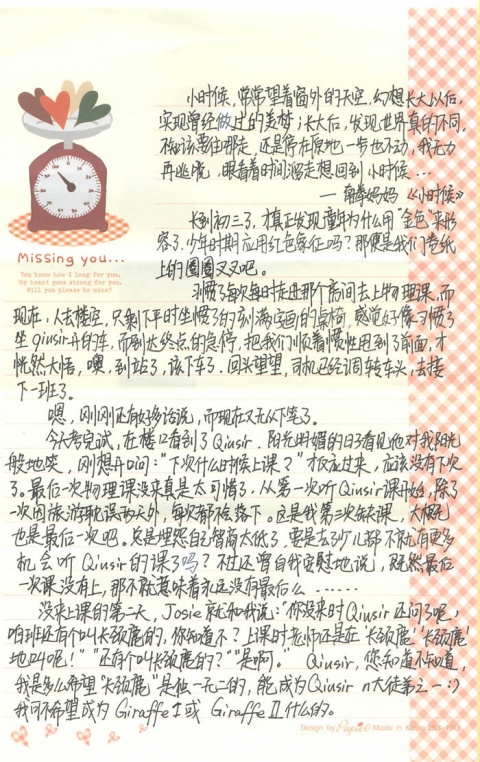 小时候，常常望着窗外的天空，幻想长大以后，
实现曾经做过的美梦；长大后，发现世界真的不同，
不知该要往哪走，还是停在原地一步也不动，我无力
再逃脱，眼看着时间溜走想回到小时候…
— 妈妈 《小时候》
长到初三了，才真正发现童年为什么用“金色”来形
容了。少年时期应用红色象征吗？那便是我们卷纸
上的圈圈叉叉吧。
Missing you...
You know now I long for you,
My heart goes strong for you.
Will you please be mine?
习惯了每次每时走进那个房间去上物理课，而
现在，人去楼空，只剩下平时坐惯了的刻满字画的桌椅，感觉好像习惯了
坐qiusir开的车，而到达终点的急停，把我们顺着惯性甩到了前面，才
恍然大悟，噢，到站了，该下车了。回头望望，司机已经调转车头，去接
下一班了。
嗯，刚刚还有好多话说，而现在又无从下笔了。
今天考完试，在楼口看到了Qiusir．阳光明媚的日子看见他对我阳光
般地笑，刚想开口问：“下次什么时候上课？”才反应过来，应该没有下次
了。最后一次物理课没来真是太可惜了．从第一次听Qiusir课开始，除了
一次因旅游耽误两次外，每次都不会落下。这是我第三次缺课，大概
也是最后一次吧。总是埋怨自己智商太低了，要是去了少儿部不就有更多
机会听Qiusir的课了吗？不过还曾自我安慰地说，既然最后
一次课没有上，那不就意味着永远没有最后么……
没来上课的第二天，Josie就和我说：“你没来时Qiusir还问了呢，
咱班还有个叫长颈鹿的，你知道不？上课时老师还是在‘长颈鹿’‘长颈鹿’
地叫呢！”“还有个叫长颈鹿的？”“是啊。” Qiusir，您知道不知道，
我是多么希望“长颈鹿”是独一无二的，能成为Qiusir n大徒弟之一:-)
我可不希望成为Giraffe I 或 Giraffe II 什么的。
Design by Made in Korea